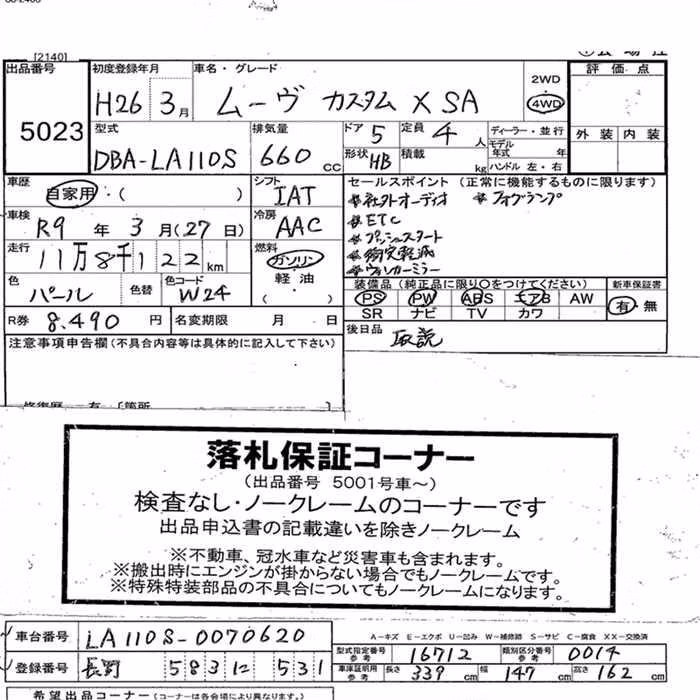 [2140]
出品番号 5023
初度登録年月 H26 3月
車名・グレード ムーヴ カスタム X SA
2WD 4WD
評価点
外装 内装
型式 DBA-LA110S
排気量 660 CC
ドア 5 定員 4 人
形状 HB 積載 kg
ディーラー・並行
モデル年式 年
ハンドル 左・右
車歴 自家用・( )
シフト IAT
セールスポイント (正常に機能するものに限ります)
社外オーディオ フォグランプ
ETC
プッシュスタート
衝突軽減
ウィンカーミラー
車検 R9 年 3 月(27 日)
冷房 AAC
走行 11万8千122 km
燃料 ガソリン・軽油・( )
色 パール 色替 色コード W24
装備品(純正品に限り○をつけてください) 新車保証書
PS PW ABS エアB AW 有・無
SR ナビ TV カワ
R券 8,490 円 名変期限 月 日
後日品 取説
注意事項申告欄(不具合内容等は具体的に記入して下さい)
修復歴 有 [箇所 ]
落札保証コーナー
(出品番号 5001号車~)
検査なし・ノークレームのコーナーです
出品申込書の記載違いを除きノークレーム
※不動車、冠水車など災害車も含まれます。
※搬出時にエンジンが掛からない場合でもノークレームです。
※特殊特装部品の不具合についてもノークレームになります。
車台番号 LA110S-0070620
A-キズ E-エクボ U-凹み W-補修跡 S-サビ C-腐食 XX-交換済
型式指定番号参考 16712 類別区分番号参考 0014
登録番号 長野 583 に 531
車庫証明用参考 長さ 339 cm 幅 147 cm 高さ 162 cm
希望出品コーナー(コーナーは各会場により異なります。)